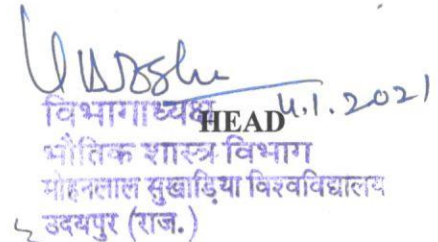 4.1.2021
विभागाध्यक्ष HEAD
भौतिक शास्त्र विभाग
मोहनलाल सुखाड़िया विश्वविद्यालय
उदयपुर (राज.)